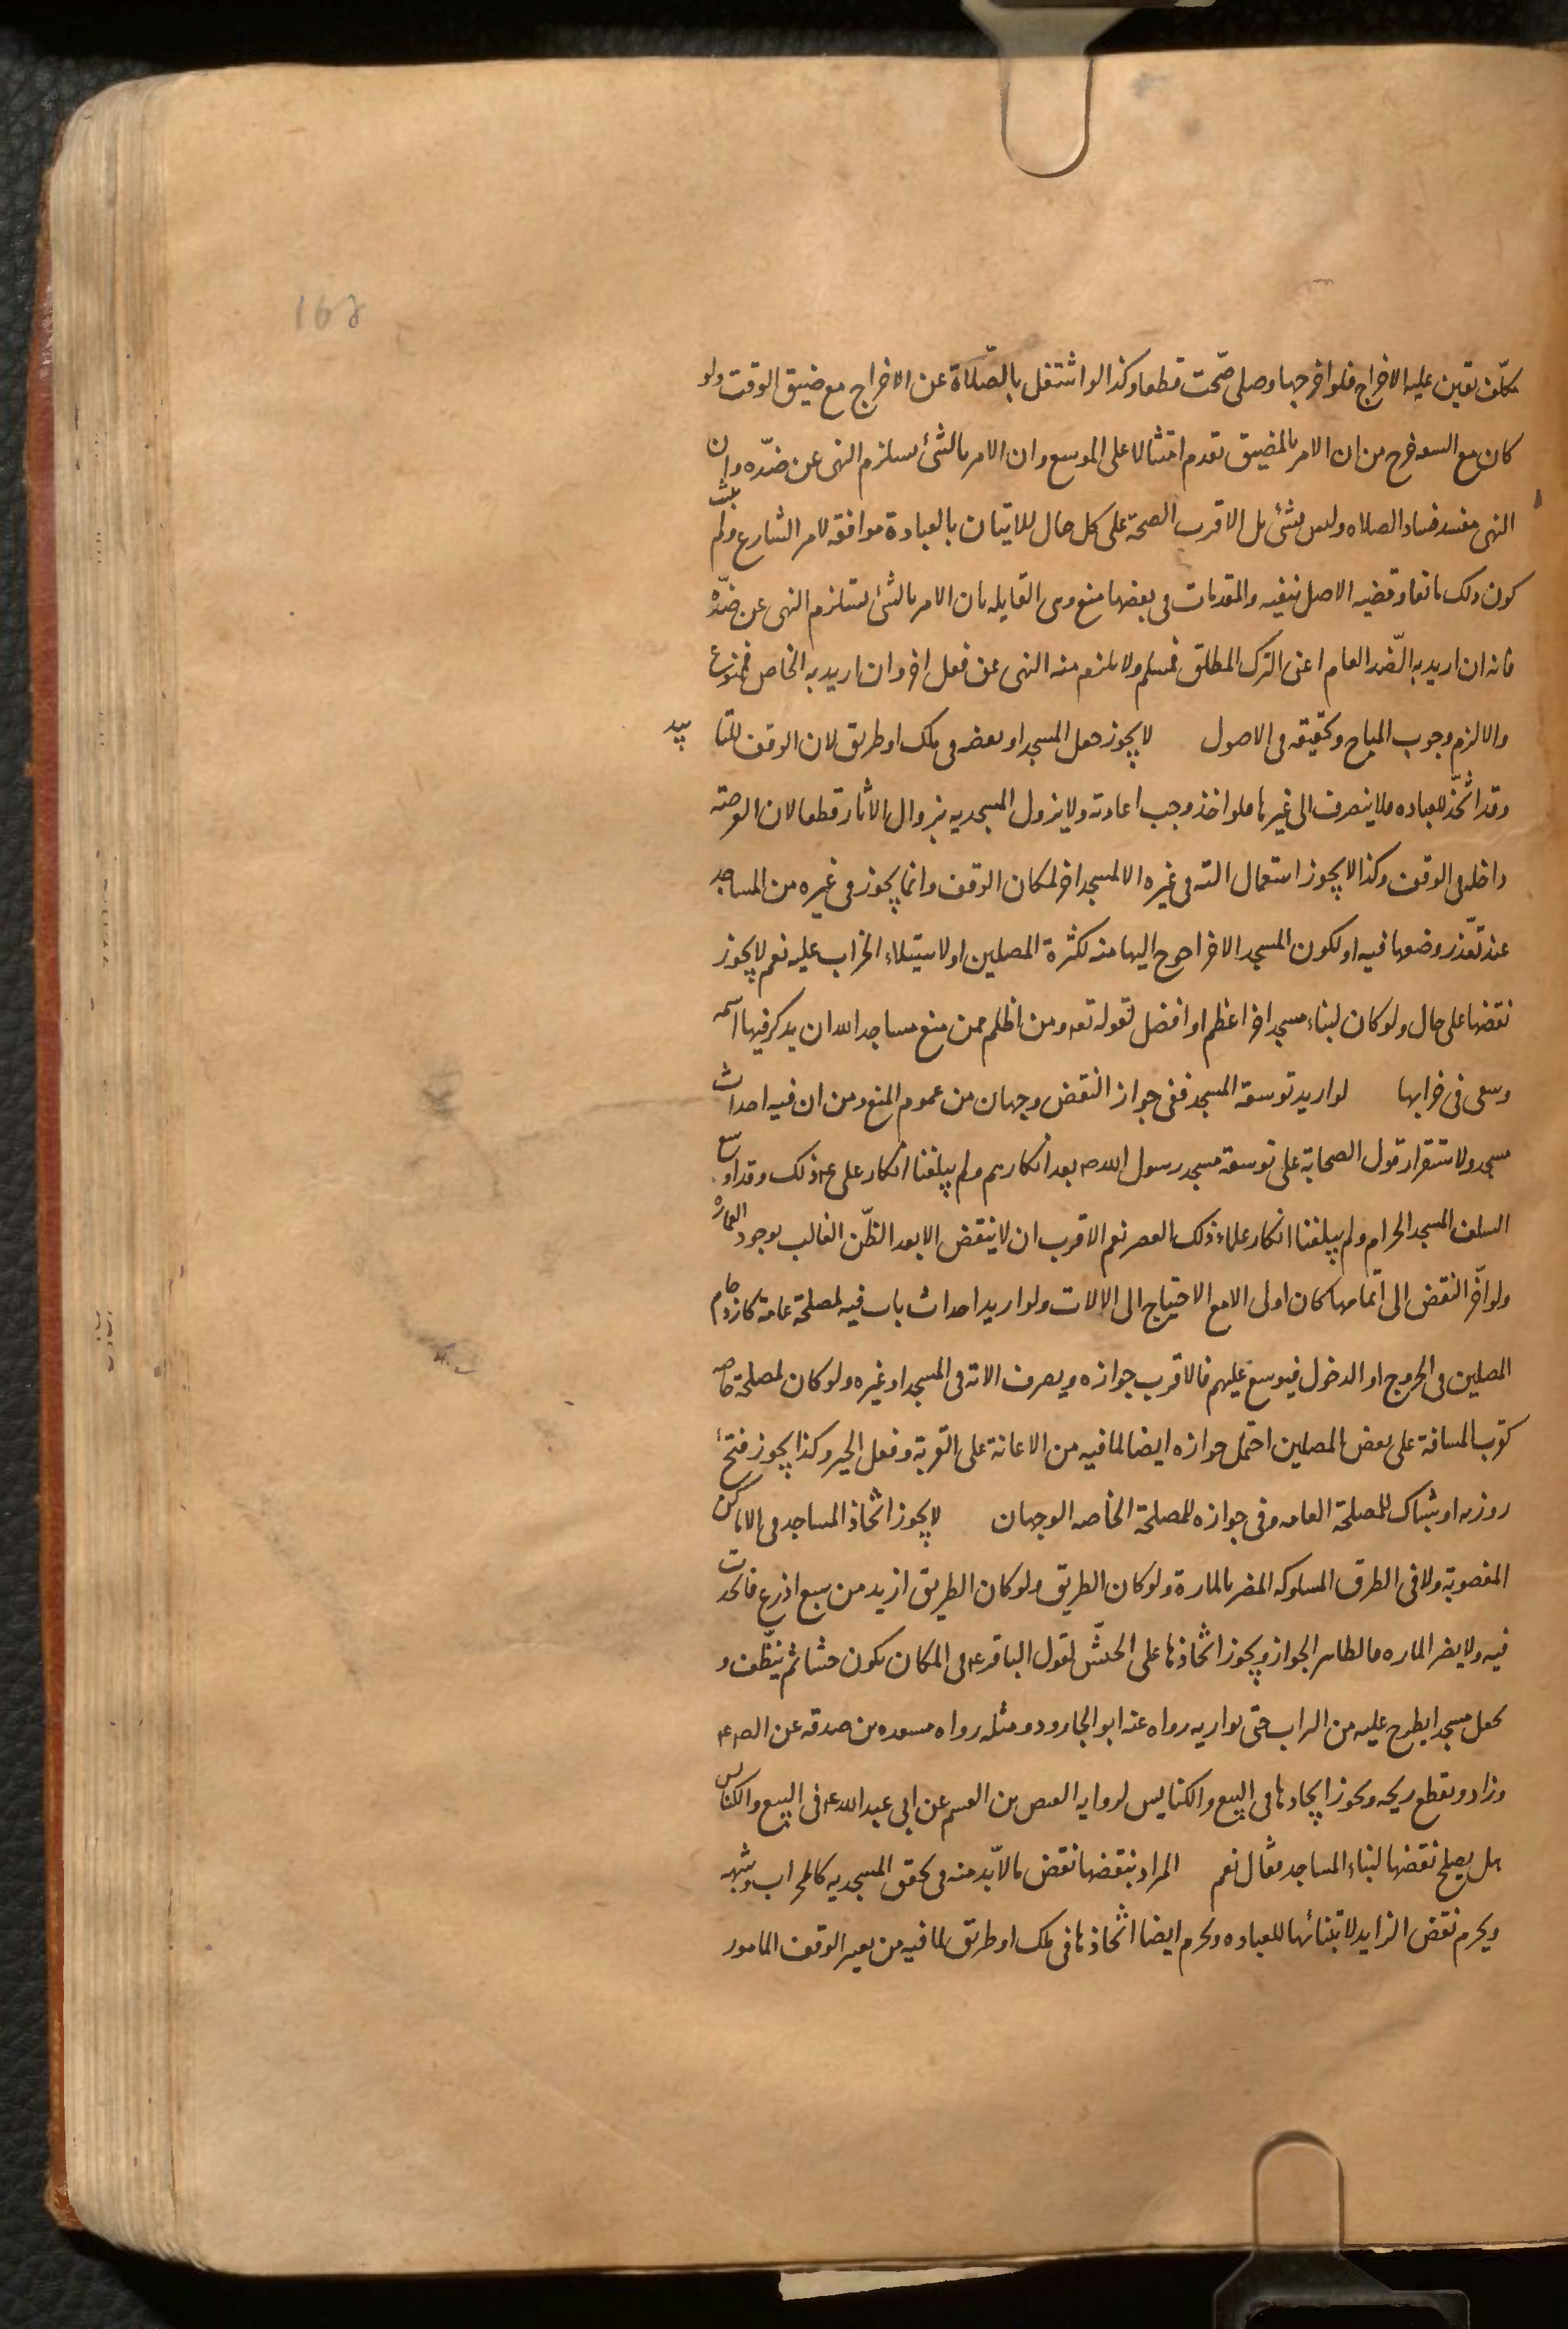 168
مكلّف تعين عليه الاخراج فلو اخرجها وصلى صحّت قطعا وكذا لو اشتغل بالصّلاة عن الاخراج مع ضيق الوقت ولو
كان مع السعه خرج من ان الامر بالمضيق تقدم امتثالا على الموسع وان الامر بالشئ يستلزم النهى عن ضدّه وان
النهى مفسد فساد الصلاه وليس بشئ بل الاقرب الصحة على كل حال للاتيان بالعبادة موافقه لامر الشارع ولم يثبت
كون ذلك مانعا وقضيه الاصل ينفيه والمقدمات فى بعضها منع وهى القايله بان الامر بالشئ يستلزم النهى عن ضدّه
فانه ان اريد به الضّد العام اعنى الترك المطلق فمسلم ولا يلزم منه النهى عن فعل اخر وان اريد به الخاص فممنوع
والا لزم وجوب المباح وتحقيقه فى الاصول لا يجوز جعل المسجد او بعضه فى ملك او طريق لان الوقف للتابيد
وقد اتّخذ للعباده فلا ينصرف الى غيرها فلو اخذ وجب اعادته ولا يزول المسجديه بزوال الاثار قطعا لان العرصه
داخله فى الوقف وكذا لا يجوز استعمال الته فى غيره الا لمسجد اخر لمكان الوقف وانما يجوز فى غيره من المساجد
عند تعّذر وضعها فيه او لكون المسجد الاخر احوج اليها منه لكثرة المصلين او لاستيلاء الخراب عليه نعم لا يجوز
نقضها على حال ولو كان لبناء مسجد اخر اعظم او افضل لقوله تعه ومن اظلم ممن منع مساجد الله ان يذكر فيها اسمه
وسعى فى خرابها لو اريد توسعة المسجد ففى جواز النقض وجهان من عموم المنع ومن ان فيه احداث
مسجد ولاستقرار قول الصحابة على توسعة مسجد رسول الله ص بعد انكارهم ولم يبلغنا انكار على ع ذلك وقد اوسع
السلف المسجد الحرام ولم يبلغنا انكار علماء ذلك العصر نعم الاقرب ان لا ينقض الا بعد الظّن الغالب بوجود العماره
ولو اخّر النقض الى اتمامها كان اولى الا مع الاحتياج الى الالات ولو اريد احداث باب فيه لمصلحة عامة كازدحام
المصلين فى الخروج او الدخول فيوسع عليهم فالاقرب جوازه ويصرف الاته فى المسجد او غيره ولو كان لمصلحة خاصه
كقرب المسافة على بعض المصلين احتمل جوازه ايضا لما فيه من الاعانة على القربة وفعل الخير وكذا يجوز فتح
روزنه او شباك للمصلحة العامه وفى جوازه للمصلحة الخاصه الوجهان لا يجوز اتّخاذ المساجد فى الاماكن
المغصوبة ولا فى الطرق المسلوكه المضر بالمارة ولو كان الطريق ولو كان الطريق ازيد من سبع اذرع فاتخذت
فيه ولا يضر الماره فالظاهر الجواز ويجوز اتّخاذها على الحشّ لقول الباقر ع فى المكان يكون حشا ثم ينظّف و
يجعل مسجدا يطرح عليه من التراب حتى يواريه رواه عنه ابو الجارود ومثله رواه مسعده بن صدقه عن الص ع
وزاد ويقطع ريحه ويجوز ايجادها فى البيع والكنايس لروايه العيص بن القسم عن ابى عبد الله ع فى البيع والكنايس
هل يصلح نقضها لبناء المساجد فقال نعم المراد بنقضها نقض ما لابّد منه فى تحقق المسجديه كالمحراب وشبهه
ويحرم نقض الزايد لابتنائها للعباده ويحرم ايضا اتّخاذها فى ملك او طريق لما فيه من تغيير الوقف المامور